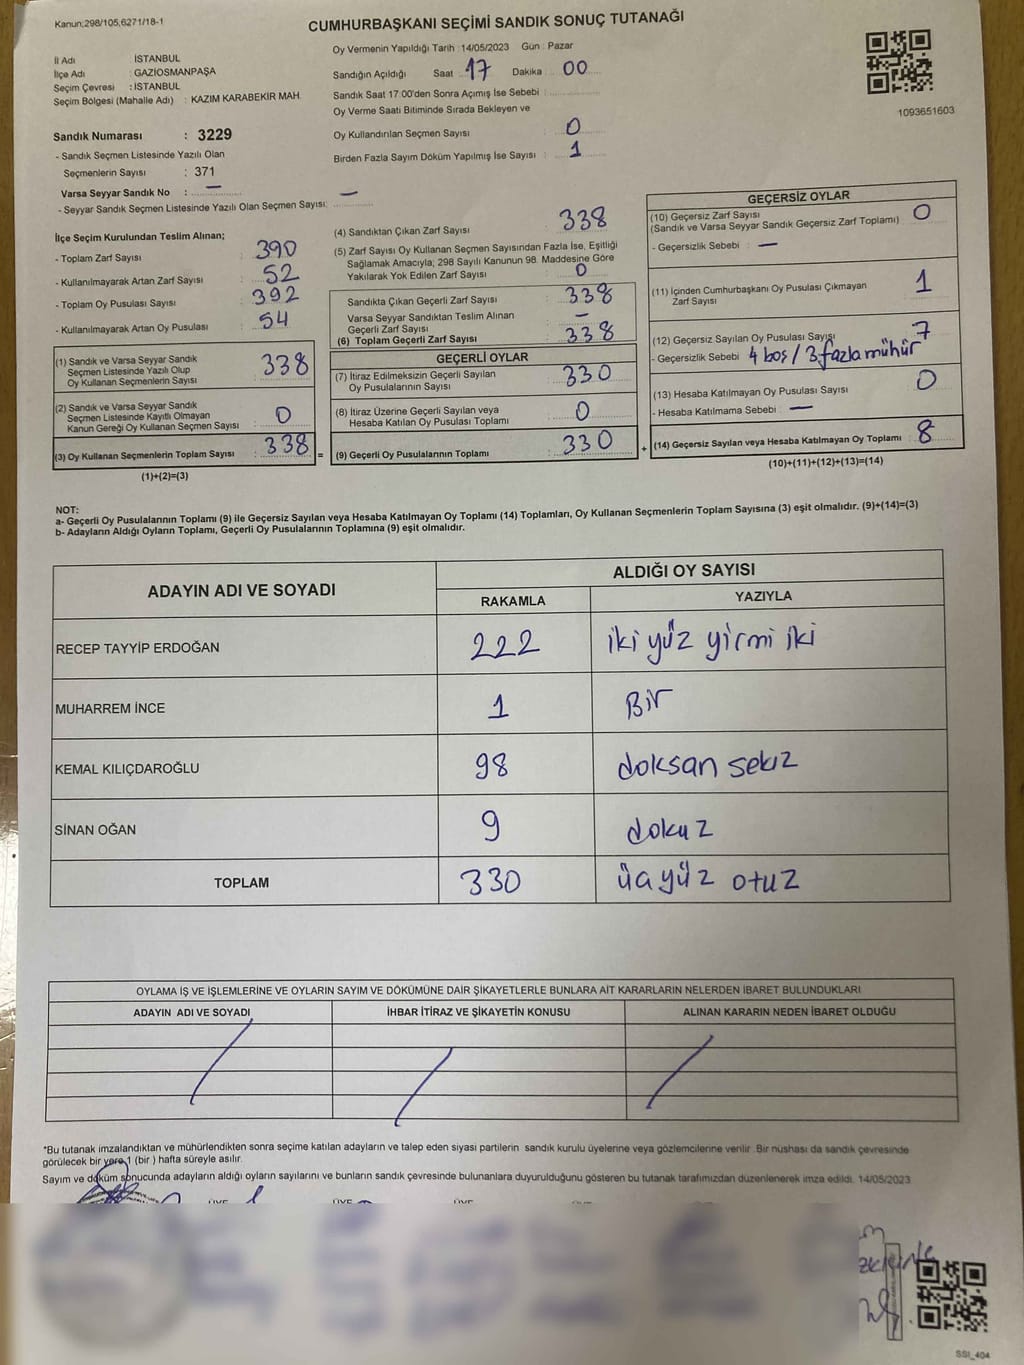 Kanun;298/105,6271/18-1
CUMHURBAŞKANI SEÇİMİ SANDIK SONUÇ TUTANAĞI
İl Adı : İSTANBUL
İlçe Adı : GAZİOSMANPAŞA
Seçim Çevresi : İSTANBUL
Seçim Bölgesi (Mahalle Adı) : KAZIM KARABEKİR MAH.
Sandık Numarası : 3229
- Sandık Seçmen Listesinde Yazılı Olan
Seçmenlerin Sayısı : 371
Varsa Seyyar Sandık No : —
- Seyyar Sandık Seçmen Listesinde Yazılı Olan Seçmen Sayısı: —
Oy Vermenin Yapıldığı Tarih : 14/05/2023 Gün : Pazar
Sandığın Açıldığı Saat 17 Dakika 00
Sandık Saat 17.00'den Sonra Açımış İse Sebebi :
Oy Verme Saati Bitiminde Sırada Bekleyen ve
Oy Kullandırılan Seçmen Sayısı : 0
Birden Fazla Sayım Döküm Yapılmış İse Sayısı : 1
1093651603
İlçe Seçim Kurulundan Teslim Alınan;
- Toplam Zarf Sayısı : 390
- Kullanılmayarak Artan Zarf Sayısı : 52
- Toplam Oy Pusulası Sayısı : 392
- Kullanılmayarak Artan Oy Pusulası : 54
(1) Sandık ve Varsa Seyyar Sandık
Seçmen Listesinde Yazılı Olup
Oy Kullanan Seçmenlerin Sayısı : 338
(2) Sandık ve Varsa Seyyar Sandık
Seçmen Listesinde Kayıtlı Olmayan
Kanun Gereği Oy Kullanan Seçmen Sayısı : 0
(3) Oy Kullanan Seçmenlerin Toplam Sayısı : 338 =
(1)+(2)=(3)
(4) Sandıktan Çıkan Zarf Sayısı : 338
(5) Zarf Sayısı Oy Kullanan Seçmen Sayısından Fazla İse, Eşitliği
Sağlamak Amacıyla; 298 Sayılı Kanunun 98. Maddesine Göre
Yakılarak Yok Edilen Zarf Sayısı : 0
Sandıkta Çıkan Geçerli Zarf Sayısı : 338
Varsa Seyyar Sandıktan Teslim Alınan
Geçerli Zarf Sayısı : —
(6) Toplam Geçerli Zarf Sayısı : 338
GEÇERLİ OYLAR
(7) İtiraz Edilmeksizin Geçerli Sayılan
Oy Pusulalarının Sayısı : 330
(8) İtiraz Üzerine Geçerli Sayılan veya
Hesaba Katılan Oy Pusulası Toplamı : 0
(9) Geçerli Oy Pusulalarının Toplamı : 330 +
GEÇERSİZ OYLAR
(10) Geçersiz Zarf Sayısı
(Sandık ve Varsa Seyyar Sandık Geçersiz Zarf Toplamı) : 0
- Geçersizlik Sebebi : —
(11) İçinden Cumhurbaşkanı Oy Pusulası Çıkmayan
Zarf Sayısı : 1
(12) Geçersiz Sayılan Oy Pusulası Sayısı : 7
- Geçersizlik Sebebi : 4 boş / 3 fazla mühür
(13) Hesaba Katılmayan Oy Pusulası Sayısı : 0
- Hesaba Katılmama Sebebi : —
(14) Geçersiz Sayılan veya Hesaba Katılmayan Oy Toplamı : 8
(10)+(11)+(12)+(13)=(14)
NOT:
a- Geçerli Oy Pusulalarının Toplamı (9) ile Geçersiz Sayılan veya Hesaba Katılmayan Oy Toplamı (14) Toplamları, Oy Kullanan Seçmenlerin Toplam Sayısına (3) eşit olmalıdır. (9)+(14)=(3)
b- Adayların Aldığı Oyların Toplamı, Geçerli Oy Pusulalarının Toplamına (9) eşit olmalıdır.
ADAYIN ADI VE SOYADI ALDIĞI OY SAYISI
RAKAMLA YAZIYLA
RECEP TAYYİP ERDOĞAN 222 iki yüz yirmi iki
MUHARREM İNCE 1 Bir
KEMAL KILIÇDAROĞLU 98 doksan sekiz
SİNAN OĞAN 9 dokuz
TOPLAM 330 üç yüz otuz
OYLAMA İŞ VE İŞLEMLERİNE VE OYLARIN SAYIM VE DÖKÜMÜNE DAİR ŞİKAYETLERLE BUNLARA AİT KARARLARIN NELERDEN İBARET BULUNDUKLARI
ADAYIN ADI VE SOYADI İHBAR İTİRAZ VE ŞİKAYETİN KONUSU ALINAN KARARIN NEDEN İBARET OLDUĞU
*Bu tutanak imzalandıktan ve mühürlendikten sonra seçime katılan adayların ve talep eden siyasi partilerin sandık kurulu üyelerine veya gözlemcilerine verilir. Bir nüshası da sandık çevresinde
görülecek bir yere 1 (bir ) hafta süreyle asılır.
Sayım ve döküm sonucunda adayların aldığı oyların sayılarını ve bunların sandık çevresinde bulunanlara duyurulduğunu gösteren bu tutanak tarafımızdan düzenlenerek imza edildi. 14/05/2023
ÜYE ÜYE ÜYE ÜYE
SSI_404